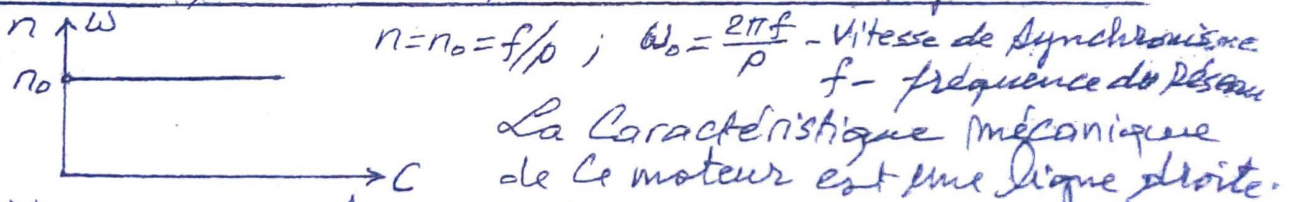 n ω
n=n₀=f/p ; ω₀=2πf/p - Vitesse de Synchronisme
n₀
f - fréquence du Réseau
La Caractéristique mécanique
C
de Ce moteur est une ligne droite.